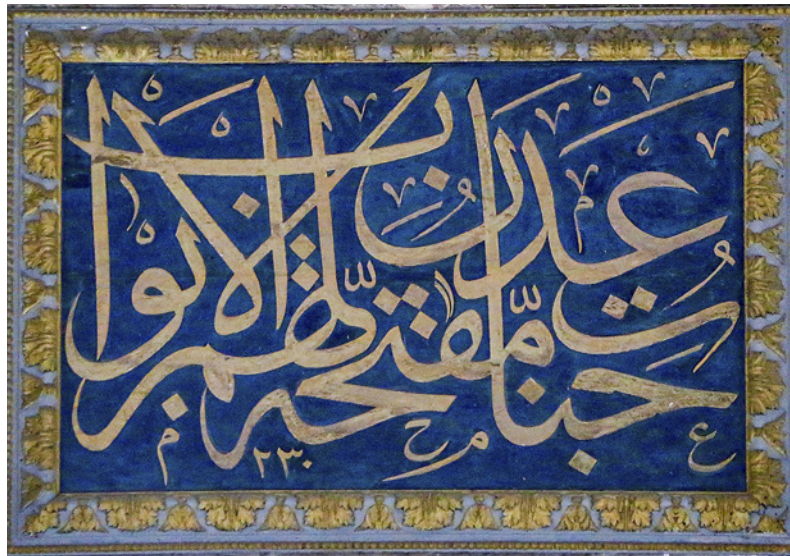 جنات عدن مفتحة لهم الأبواب
٢٣٠